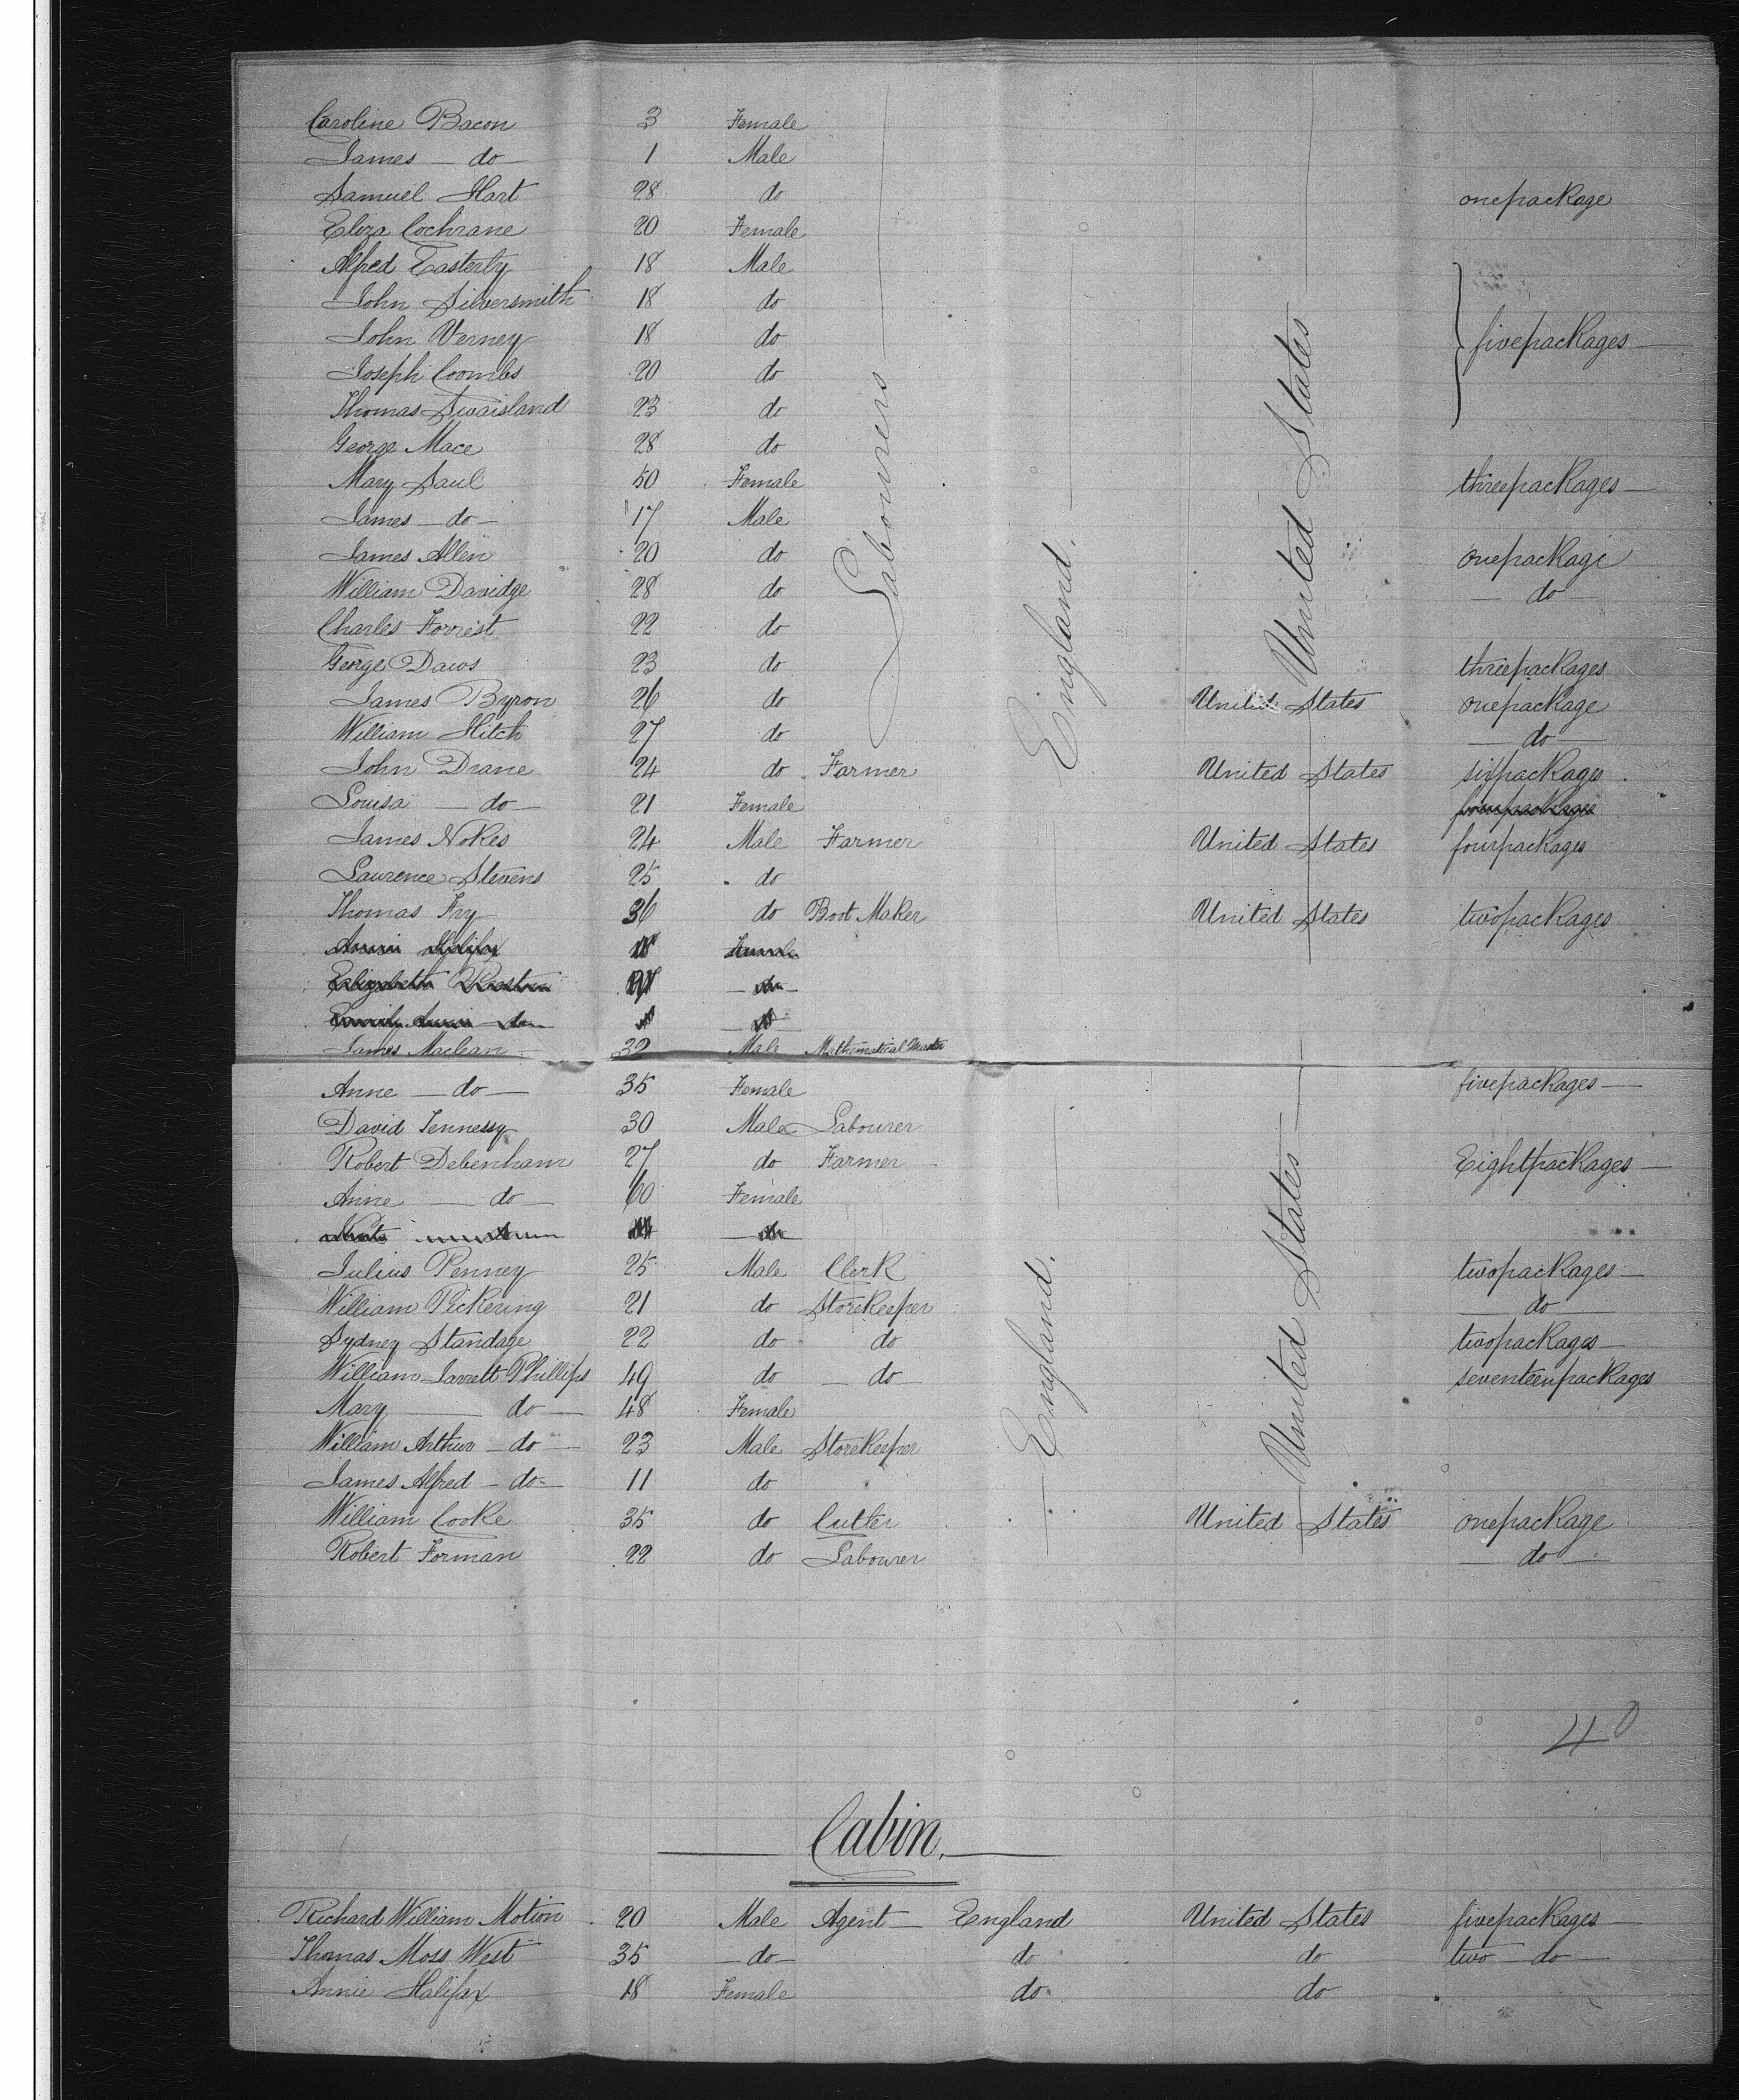 Caroline Bacon 3 Female
James — do — 1 Male
Samuel Hart 28 do onepackage
Eliza Cochrane 20 Female
Alfred Easterby 18 Male
John Silversmith 18 do
John Verney 18 do fivepackages
Joseph Coombs 20 do
Thomas Swaisland 23 do
George Mace 28 do
Mary Saul 50 Female threepackages
James — do — 17 Male
James Allen 20 do onepackage
William Davidge 28 do — do —
Charles Forrest 22 do
George Daws 23 do threepackages
Labourers
England.
United States
James Byron 26 do United States onepackage
William Hitch 27 do — do —
John Drane 24 do Farmer United States sixpackages
Louisa — do — 21 Female fourpackages
James Nokes 24 Male Farmer United States fourpackages
Laurence Stevens 25 do
Thomas Fry 36 do Boot Maker United States twopackages
Annie Halifax 18 Female
Elizabeth do
do
James Maclean 32 Male Mathematical Master
Anne — do — 35 Female fivepackages
David Fennessy 30 Male Labourer
Robert Debenham 27 do Farmer Eightpackages
Anne — do — 60 Female
do
Julius Penney 25 Male Clerk twopackages
William Pickering 21 do Storekeeper — do —
Sydney Standage 22 do do twopackages
William Jarrett Phillips 49 do — do — seventeenpackages
Mary — do — 48 Female
William Arthur — do — 23 Male Storekeeper
James Alfred — do — 11 do
England.
United States
William Cooke 35 do Cutler United States onepackage
Robert Forman 22 do Labourer — do —
40
Cabin.
Richard William Motion 20 Male Agent — England United States fivepackages
Thomas Moss West 35 — do — do do two — do —
Annie Halifax 18 Female do do